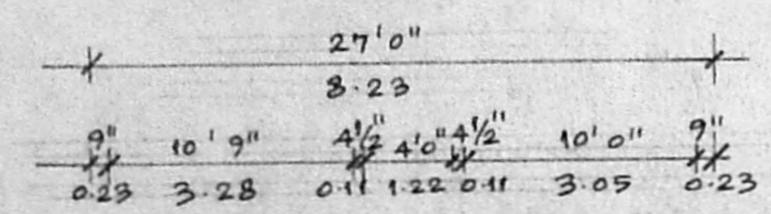 27'0"
8.23
9" 10'9" 4½" 4'0" 4½" 10'0" 9"
0.23 3.28 0.11 1.22 0.11 3.05 0.23